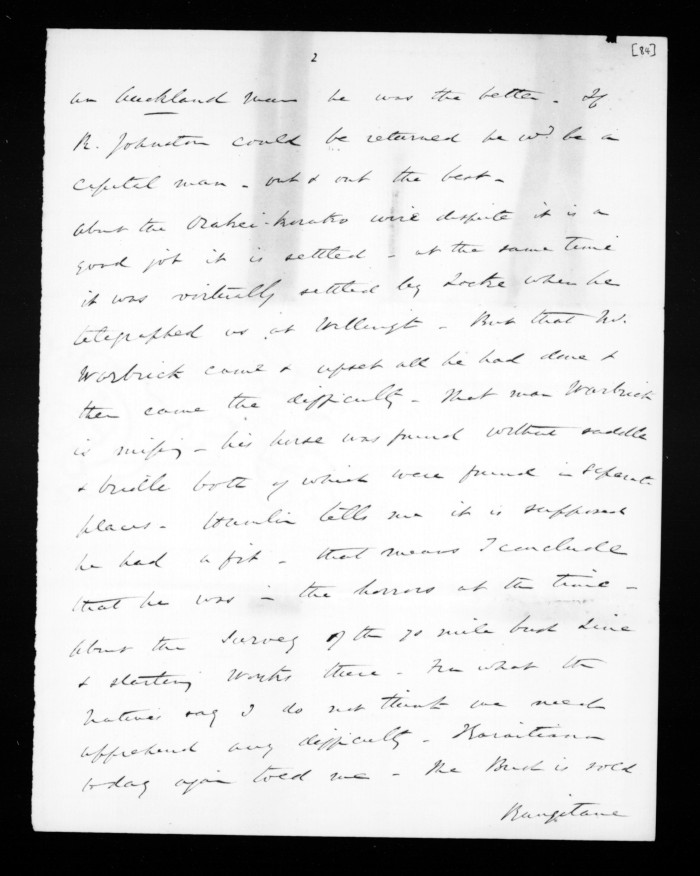 [84]
2
an Auckland man he was the better. If
R. Johnston could be returned he wd. be a
capital man - out & out the best -
About the Orakei-Korako wire dispute it is a
good job it is settled - at the same time
it was virtually settled by Locke when he
telegraphed us at Wellingt - But that Mr.
Warbrick came & upset all he had done &
then came the difficulty - That man Warbrick
is missing - his horse was found without saddle
& bridle both of which were found in separate
places - Hamlin tells me it is supposed
he had a fit - that means I conclude
that he was in the horrors at the time -
About the Survey of the 70 mile bush Line
& starting works there - Fm what the
Natives say I do not think we need
apprehend any difficulty - Karaitiana
today again told me - The Bush is sold
Rangitane